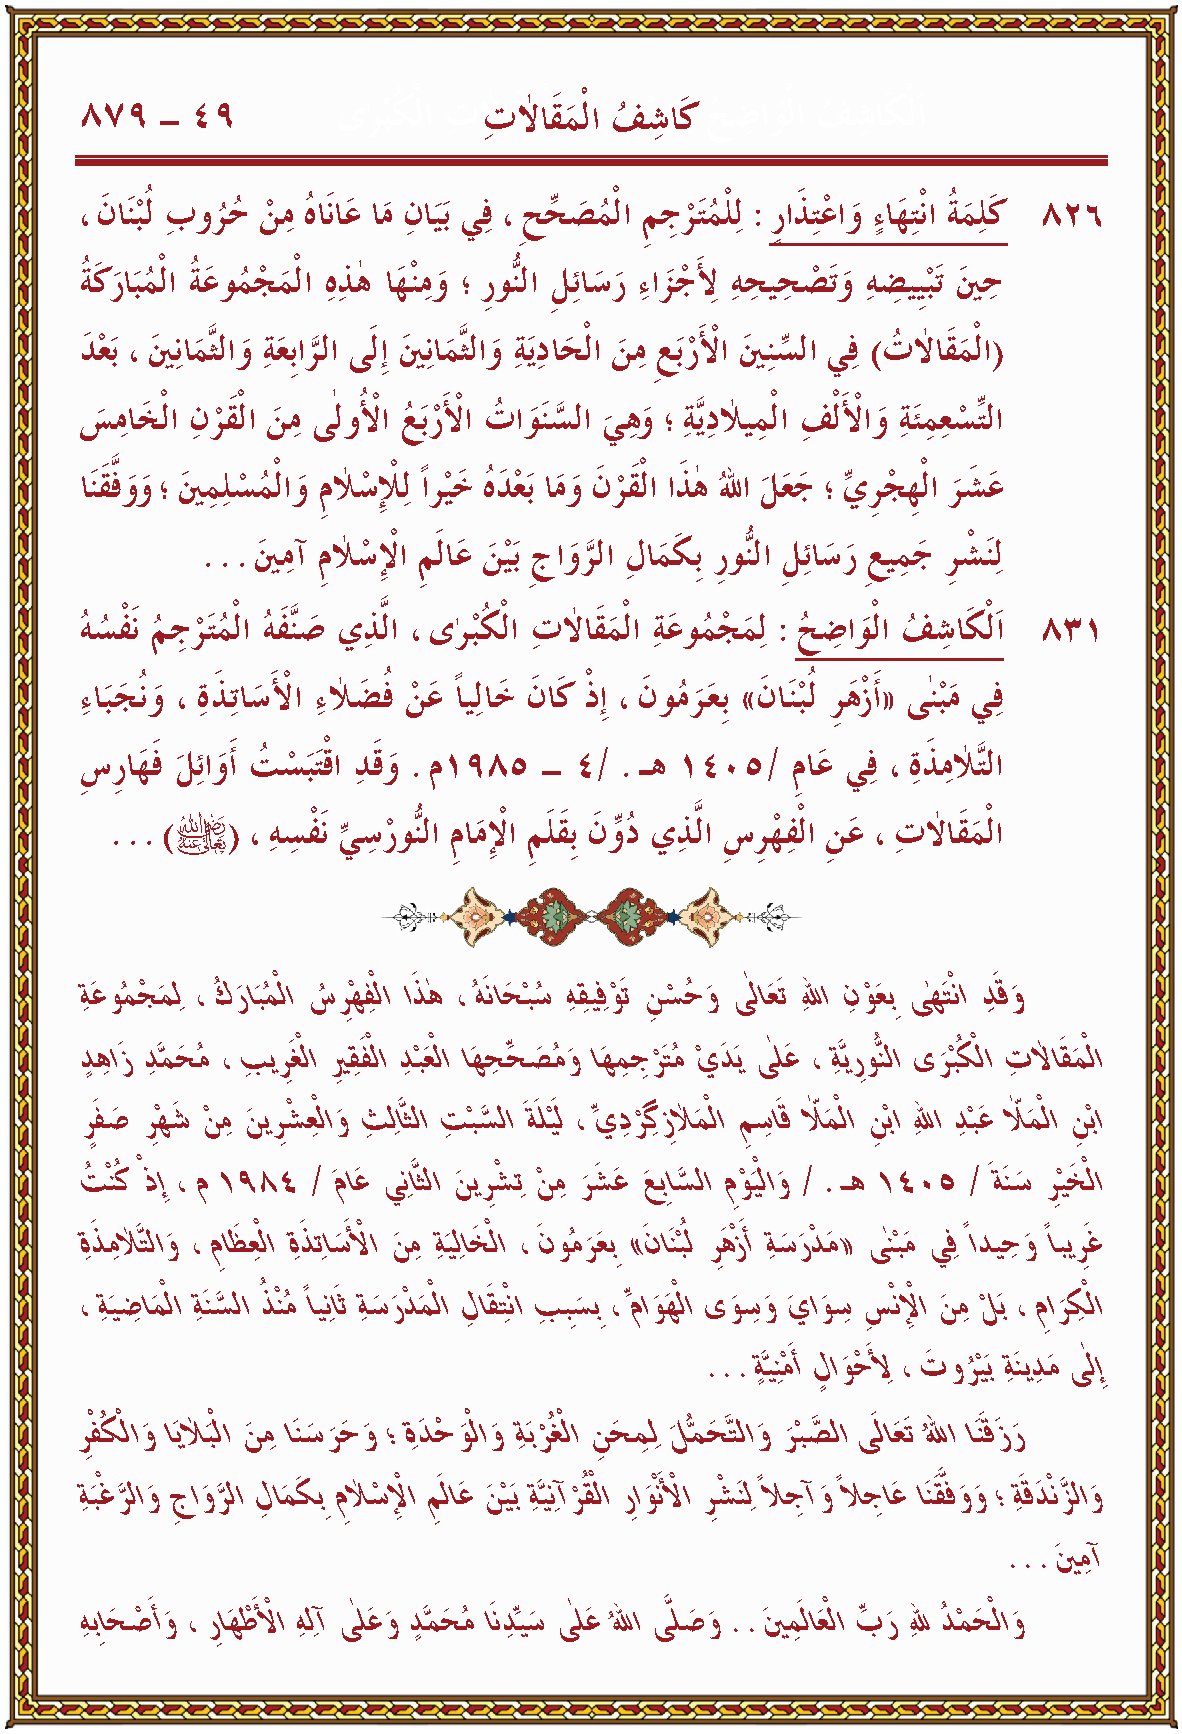 كَاشِفُ الْمَقَالاٰتِ ٤٩ ــ ٨٧٩
٨٢٦ كَلِمَةُ انْتِهَاءٍ وَاعْتِذَارٍ : لِلْمُتَرْجِمِ الْمُصَحِّحِ ، فِي بَيَانِ مَا عَانَاهُ مِنْ حُرُوبِ لُبْنَانَ ،
حِينَ تَبْيِيضِهِ وَتَصْحِيحِهِ لِأَجْزَاءِ رَسَائِلِ النُّورِ ؛ وَمِنْهَا هٰذِهِ الْمَجْمُوعَةُ الْمُبَارَكَةُ
(الْمَقَالاٰتُ) فِي السِّنِينَ الْأَرْبَعِ مِنَ الْحَادِيَةِ وَالثَّمَانِينَ إِلَى الرَّابِعَةِ وَالثَّمَانِينَ ، بَعْدَ
التِّسْعِمِئَةِ وَالْأَلْفِ الْمِيلاٰدِيَّةِ ؛ وَهِيَ السَّنَوَاتُ الْأَرْبَعُ الْأُولٰى مِنَ الْقَرْنِ الْخَامِسَ
عَشَرَ الْهِجْرِيِّ ؛ جَعَلَ اللهُ هٰذَا الْقَرْنَ وَمَا بَعْدَهُ خَيْراً لِلْإِسْلاٰمِ وَالْمُسْلِمِينَ ؛ وَوَفَّقَنَا
لِنَشْرِ جَمِيعِ رَسَائِلِ النُّورِ بِكَمَالِ الرَّوَاجِ بَيْنَ عَالَمِ الْإِسْلاٰمِ آمِينَ . . .
٨٣١ اَلْكَاشِفُ الْوَاضِحُ : لِمَجْمُوعَةِ الْمَقَالاٰتِ الْكُبْرٰى ، الَّذِي صَنَّفَهُ الْمُتَرْجِمُ نَفْسُهُ
فِي مَبْنٰى «أَزْهَرِ لُبْنَانَ» بِعَرَمُونَ ، إِذْ كَانَ خَالِياً عَنْ فُضَلاٰءِ الْأَسَاتِذَةِ ، وَنُجَبَاءِ
التَّلاٰمِذَةِ ، فِي عَامِ /١٤٠٥ هـ . /٤ ــ ١٩٨٥م . وَقَدِ اقْتَبَسْتُ أَوَائِلَ فَهَارِسِ
الْمَقَالاٰتِ ، عَنِ الْفِهْرِسِ الَّذِي دُوِّنَ بِقَلَمِ الْإِمَامِ النُّورْسِيِّ نَفْسِهِ ، (رضي الله تعالى عنه) . . .
وَقَدِ انْتَهٰى بِعَوْنِ اللهِ تَعَالٰى وَحُسْنِ تَوْفِيقِهِ سُبْحَانَهُ ، هٰذَا الْفِهْرِسُ الْمُبَارَكُ ، لِمَجْمُوعَةِ
الْمَقَالاٰتِ الْكُبْرَى النُّورِيَّةِ ، عَلٰى يَدَيْ مُتَرْجِمِهَا وَمُصَحِّحِهَا الْعَبْدِ الْفَقِيرِ الْغَرِيبِ ، مُحَمَّدِ زَاهِدٍ
ابْنِ الْمَلاَّ عَبْدِ اللهِ ابْنِ الْمَلاَّ قَاسِمِ الْمَلاٰزِگِرْدِيِّ ، لَيْلَةَ السَّبْتِ الثَّالِثِ وَالْعِشْرِينَ مِنْ شَهْرِ صَفَرِ
الْخَيْرِ سَنَةَ / ١٤٠٥ هـ . / وَالْيَوْمِ السَّابِعَ عَشَرَ مِنْ تِشْرِينَ الثَّانِي عَامَ / ١٩٨٤ م ، إِذْ كُنْتُ
غَرِيباً وَحِيداً فِي مَبْنٰى «مَدْرَسَةِ أَزْهَرِ لُبْنَانَ» بِعَرَمُونَ ، الْخَالِيَةِ مِنَ الْأَسَاتِذَةِ الْعِظَامِ ، وَالتَّلاٰمِذَةِ
الْكِرَامِ ، بَلْ مِنَ الْإِنْسِ سِوَايَ وَسِوَى الْهَوَامِّ ، بِسَبِبِ انْتِقَالِ الْمَدْرَسَةِ ثَانِياً مُنْذُ السَّنَةِ الْمَاضِيَةِ ،
إِلٰى مَدِينَةِ بَيْرُوتَ ، لِأَحْوَالٍ أَمْنِيَّةٍ . . .
رَزَقَنَا اللهُ تَعَالَى الصَّبْرَ وَالتَّحَمُّلَ لِمِحَنِ الْغُرْبَةِ وَالْوَحْدَةِ ؛ وَحَرَسَنَا مِنَ الْبَلاٰيَا وَالْكُفْرِ
وَالزَّنْدَقَةِ ؛ وَوَفَّقَنَا عَاجِلاً وَآجِلاً لِنَشْرِ الْأَنْوَارِ الْقُرْآنِيَّةِ بَيْنَ عَالَمِ الْإِسْلاٰمِ بِكَمَالِ الرَّوَاجِ وَالرَّغْبَةِ
آمِينَ . . .
وَالْحَمْدُ لِلهِ رَبِّ الْعَالَمِينَ . . وَصَلَّى اللهُ عَلٰى سَيِّدِنَا مُحَمَّدٍ وَعَلٰى آلِهِ الْأَطْهَارِ ، وَأَصْحَابِهِ